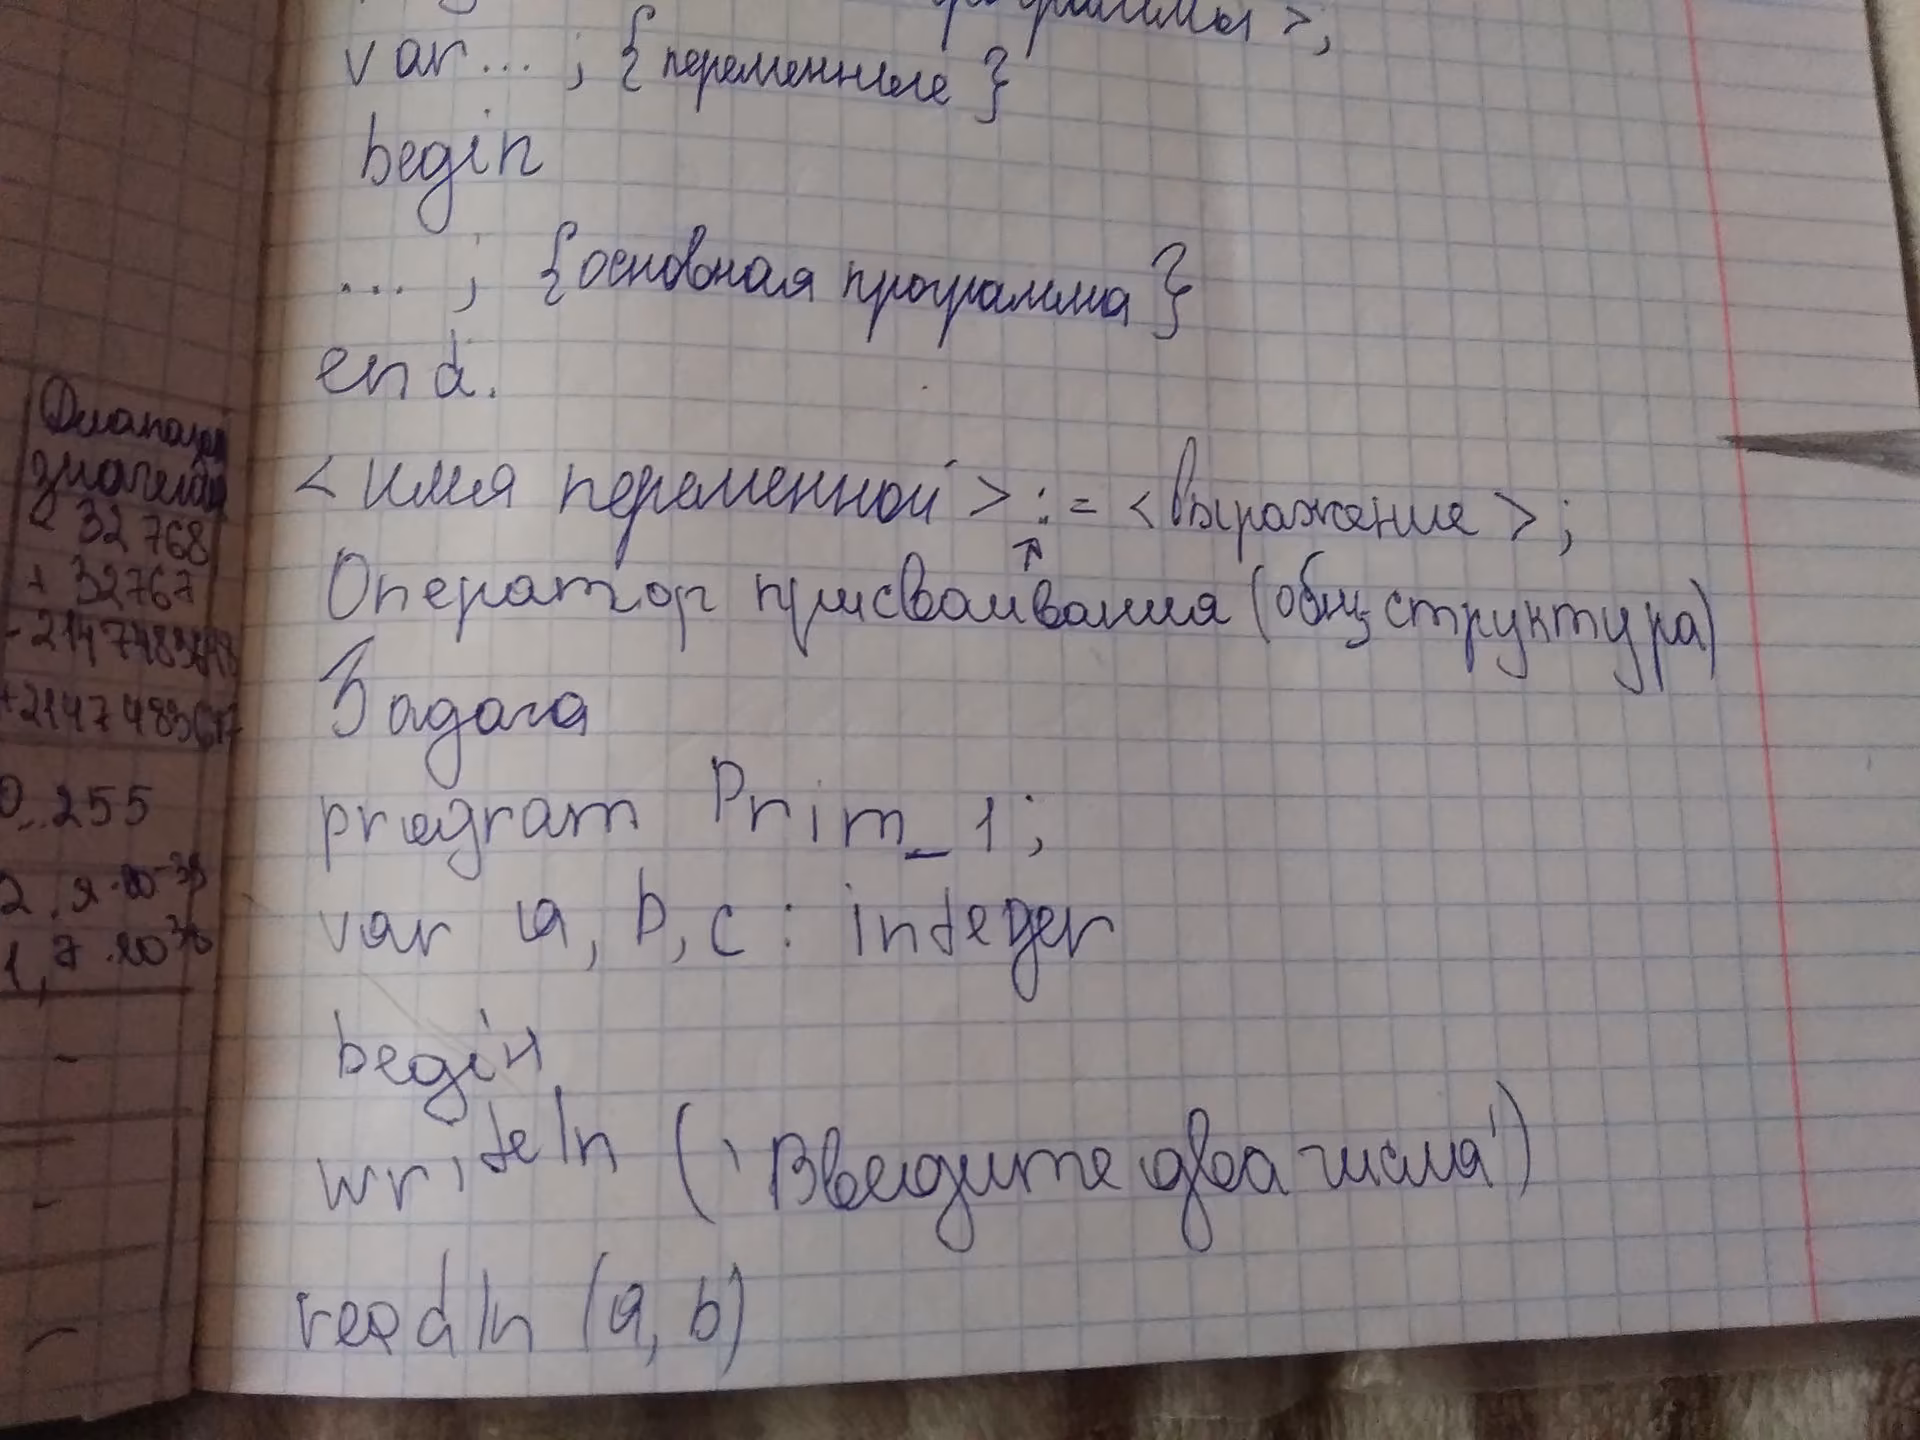 программы >;
var ... ; { переменные }
begin
... ; { основная программа }
end.
< имя переменной > := < выражение >;
Оператор присваивания (общ структура)
Задача
program Prim_1;
var a, b, c : integer
begin
writeln ('Введите два числа')
readln (a, b)
Диапазон
значений
- 32 768
+ 32767
- 2147483648
+2147483647
0...255
1,7 · 10³⁸